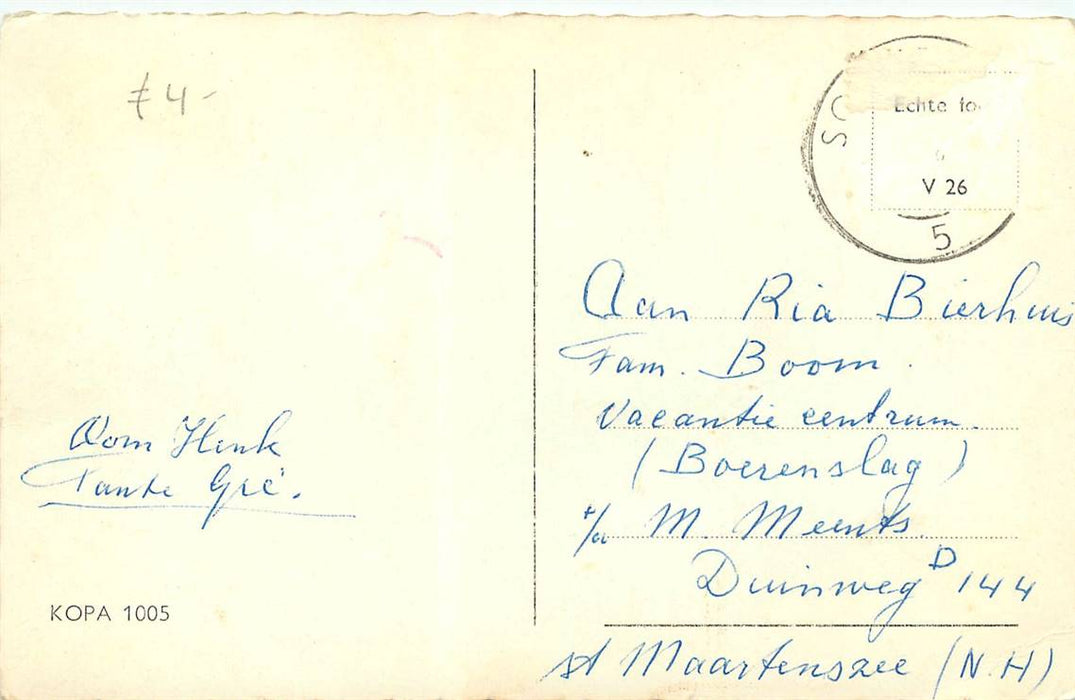 €4-
Oom Henk
Tante Gré.
KOPA 1005
Echte fo
V 26
5
Aan Ria Bierhuis
Fam. Boom.
Vacantie centrum.
(Boerenslag)
p/a M. Meents.
Duinweg D 144
st Maartenszee (N.H)